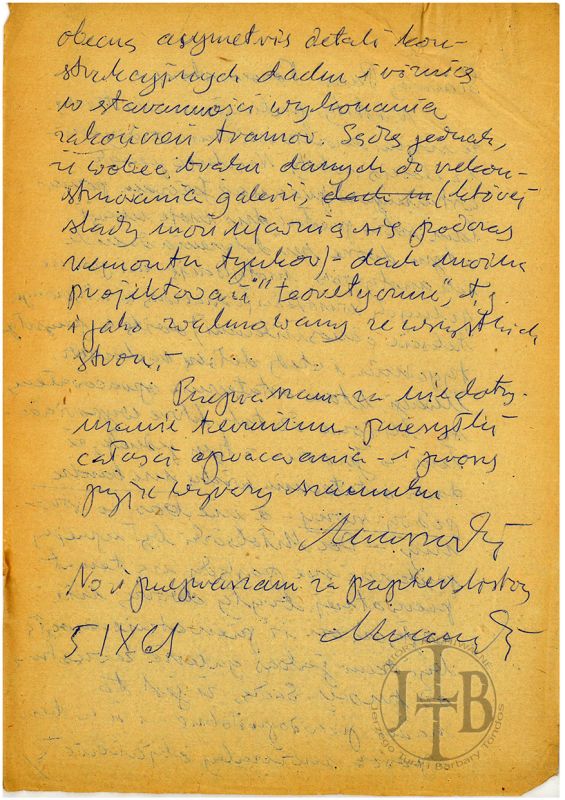 obecną asymetrię detali kon-
strukcyjnych dachu i różnicę
w staranności wykonania
zakończeń tramów. Sądzę jednak,
iż wobec braku danych do rekon-
struowania galerii, dach (której
ślady może ujawnią się podczas
remontu tynków) - dach można
projektować "teoretycznie", t.j.
i jako walmowany ze wszystkich
stron.-
Przepraszam za niedotrzy-
manie terminu przesyłki
całości opracowania - i proszę
przyjąć wyrazy szacunku
No i przepraszam za papier listowy
5 IX 61
ZBIORY PRYWATNE
JTB
Jerzego Turki i Barbary Tondos